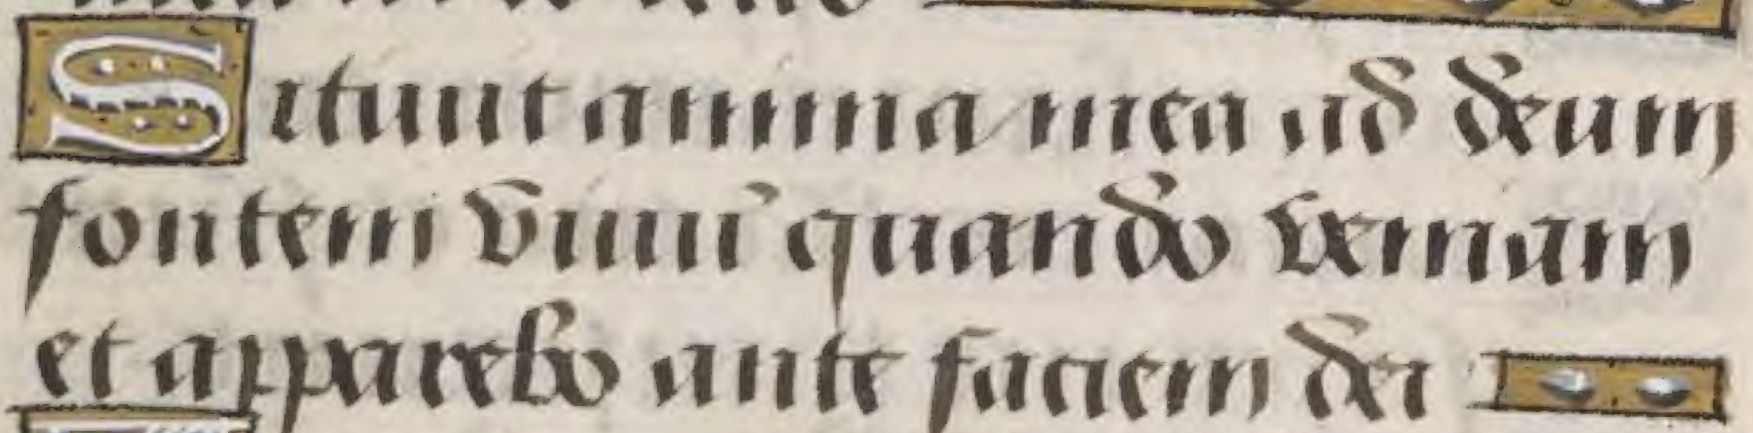 Sitiuit anima mea ad deum
fontem viuū quando veniam
et apparebo ante faciem dei